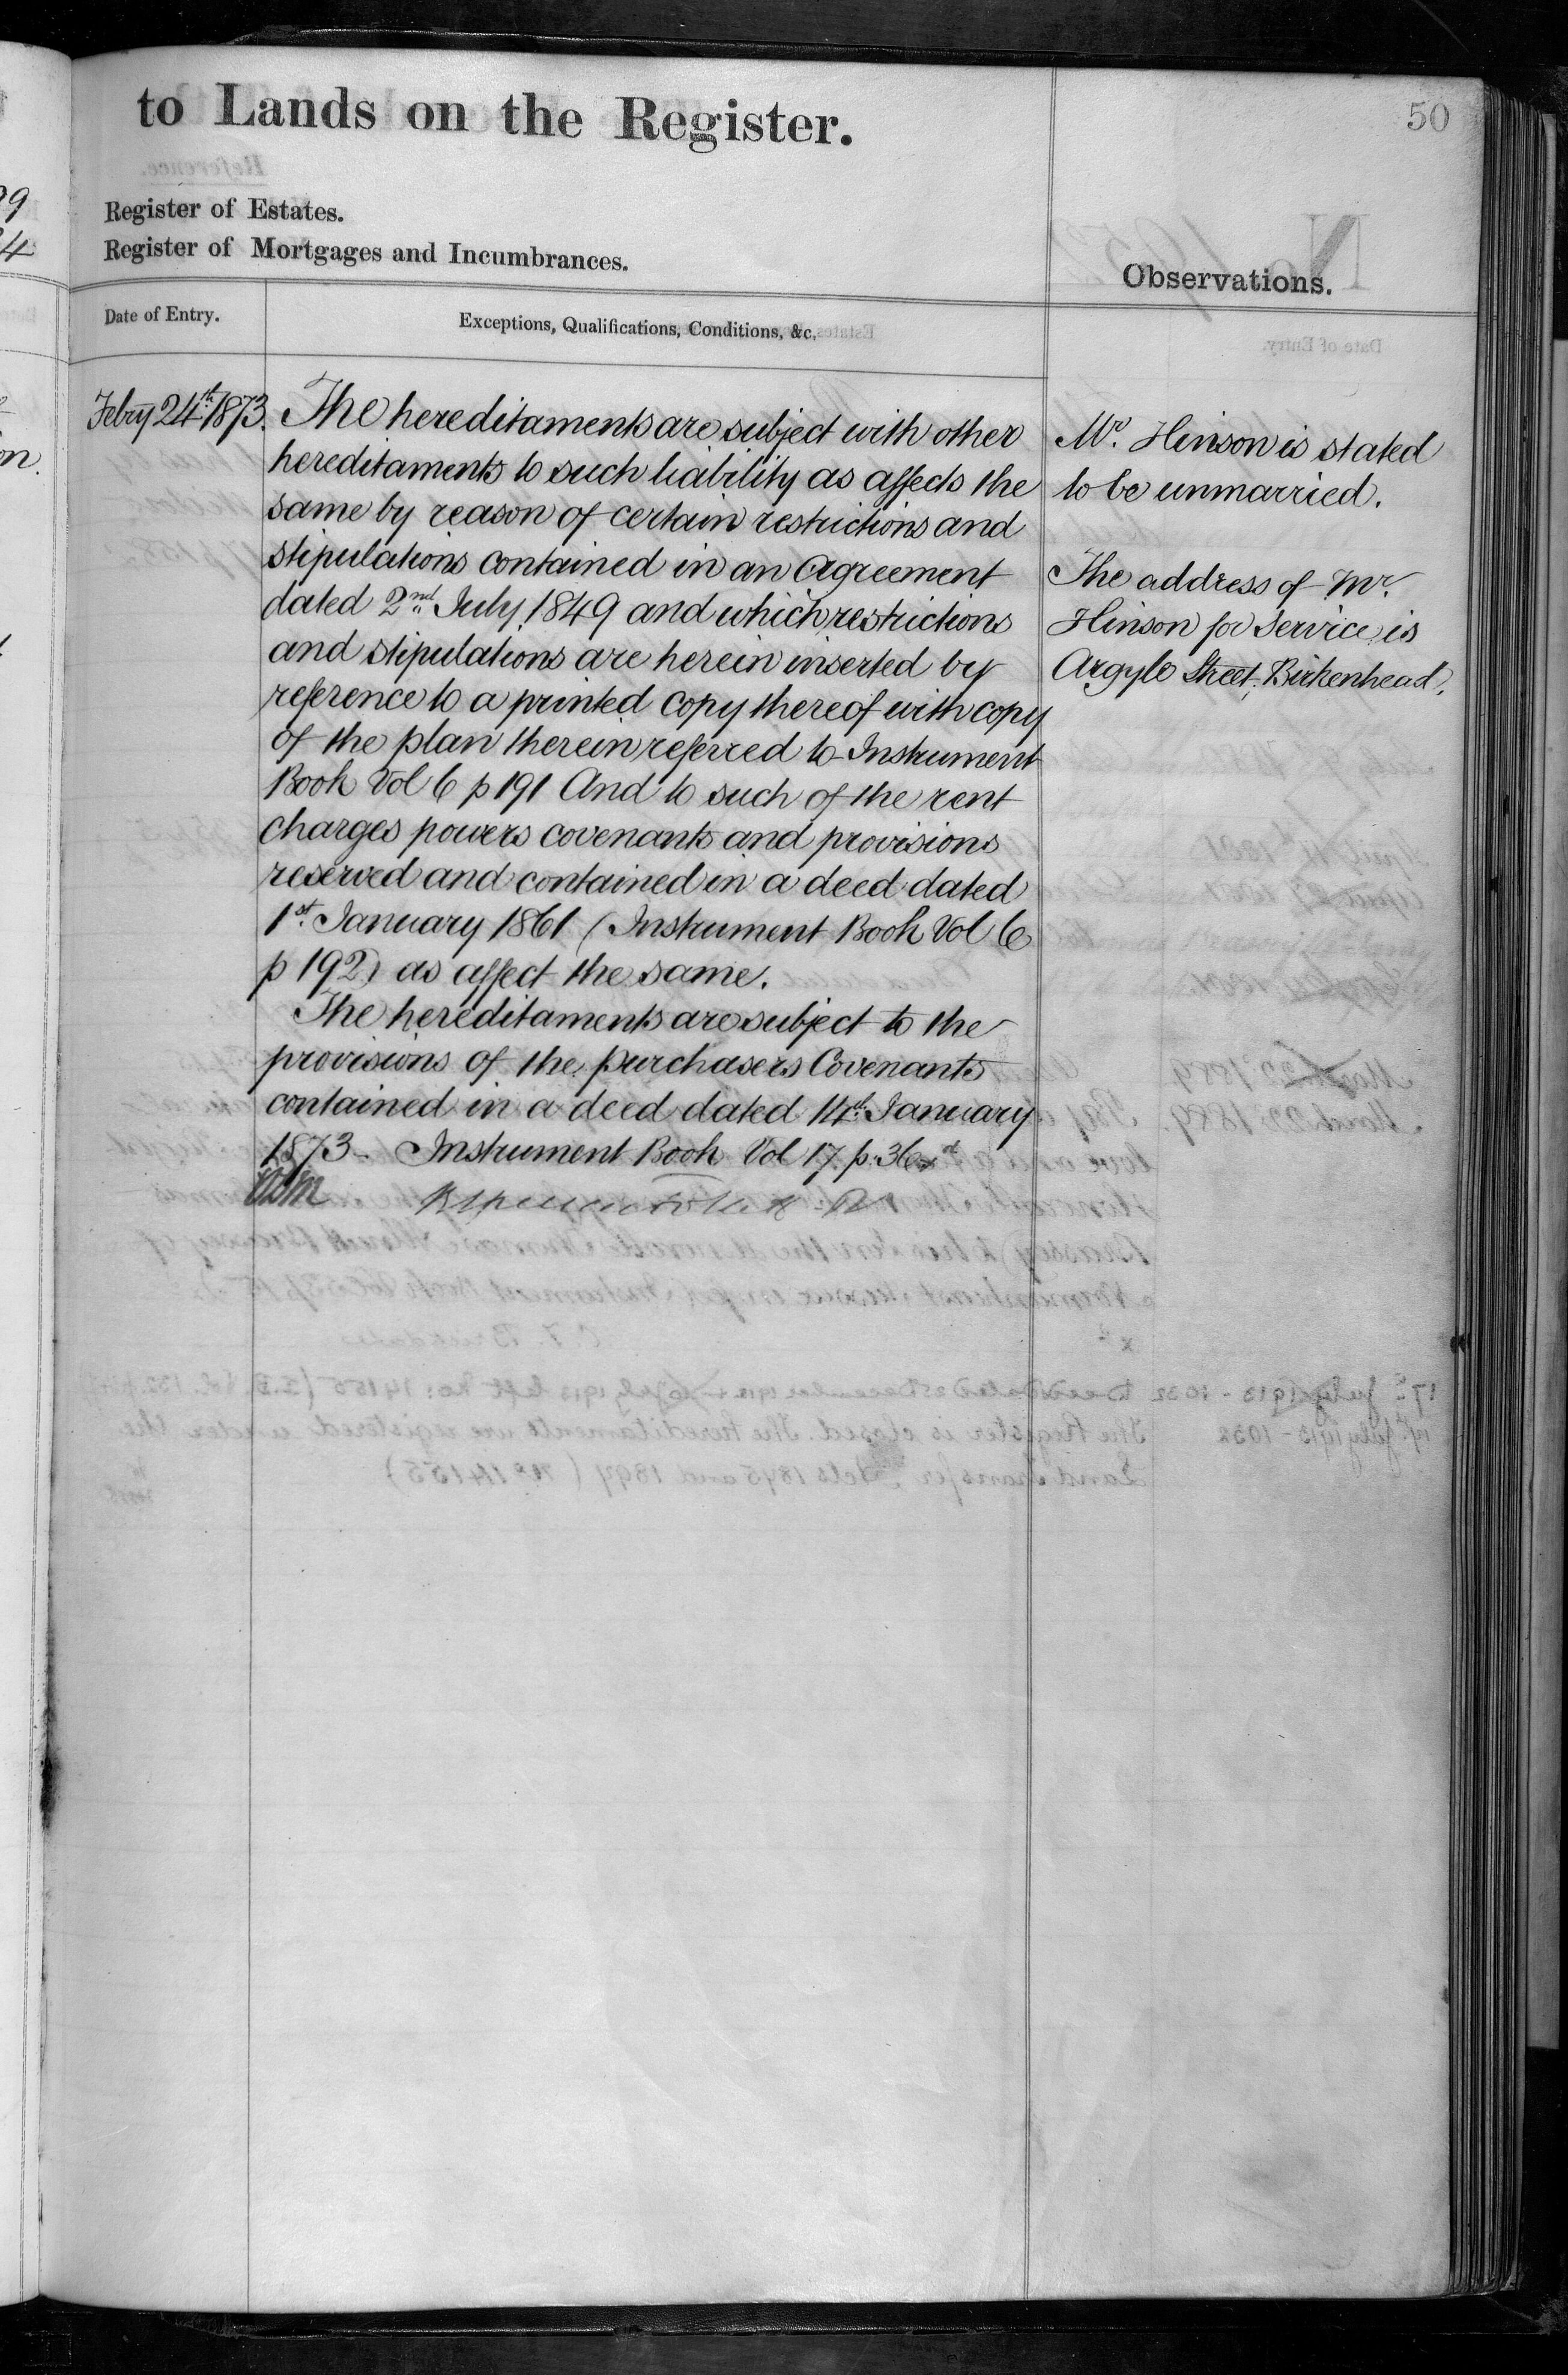 50
to Lands on the Register.
Register of Estates.
Register of Mortgages and Incumbrances.
Observations.
Date of Entry.
Exceptions, Qualifications, Conditions, &c,
Febry 24th 1873.
The hereditaments are subject with other
hereditaments to such liability as affects the
same by reason of certain restrictions and
stipulations contained in an Agreement
dated 2nd July 1849 and which restrictions
and stipulations are herein inserted by
reference to a printed copy thereof with copy
of the plan therein referred to Instrument
Book Vol 6 p 191 And to such of the rent
charges powers covenants and provisions
reserved and contained in a deed dated
1st January 1861 (Instrument Book Vol 6
p 192) as affect the same.
The hereditaments are subject to the
provisions of the purchasers Covenants
contained in a deed dated 14th January
1873 - Instrument Book Vol 17 p. 36
Mr. Hinson is stated
to be unmarried.
The address of Mr.
Hinson for Service is
Argyle Street, Birkenhead.